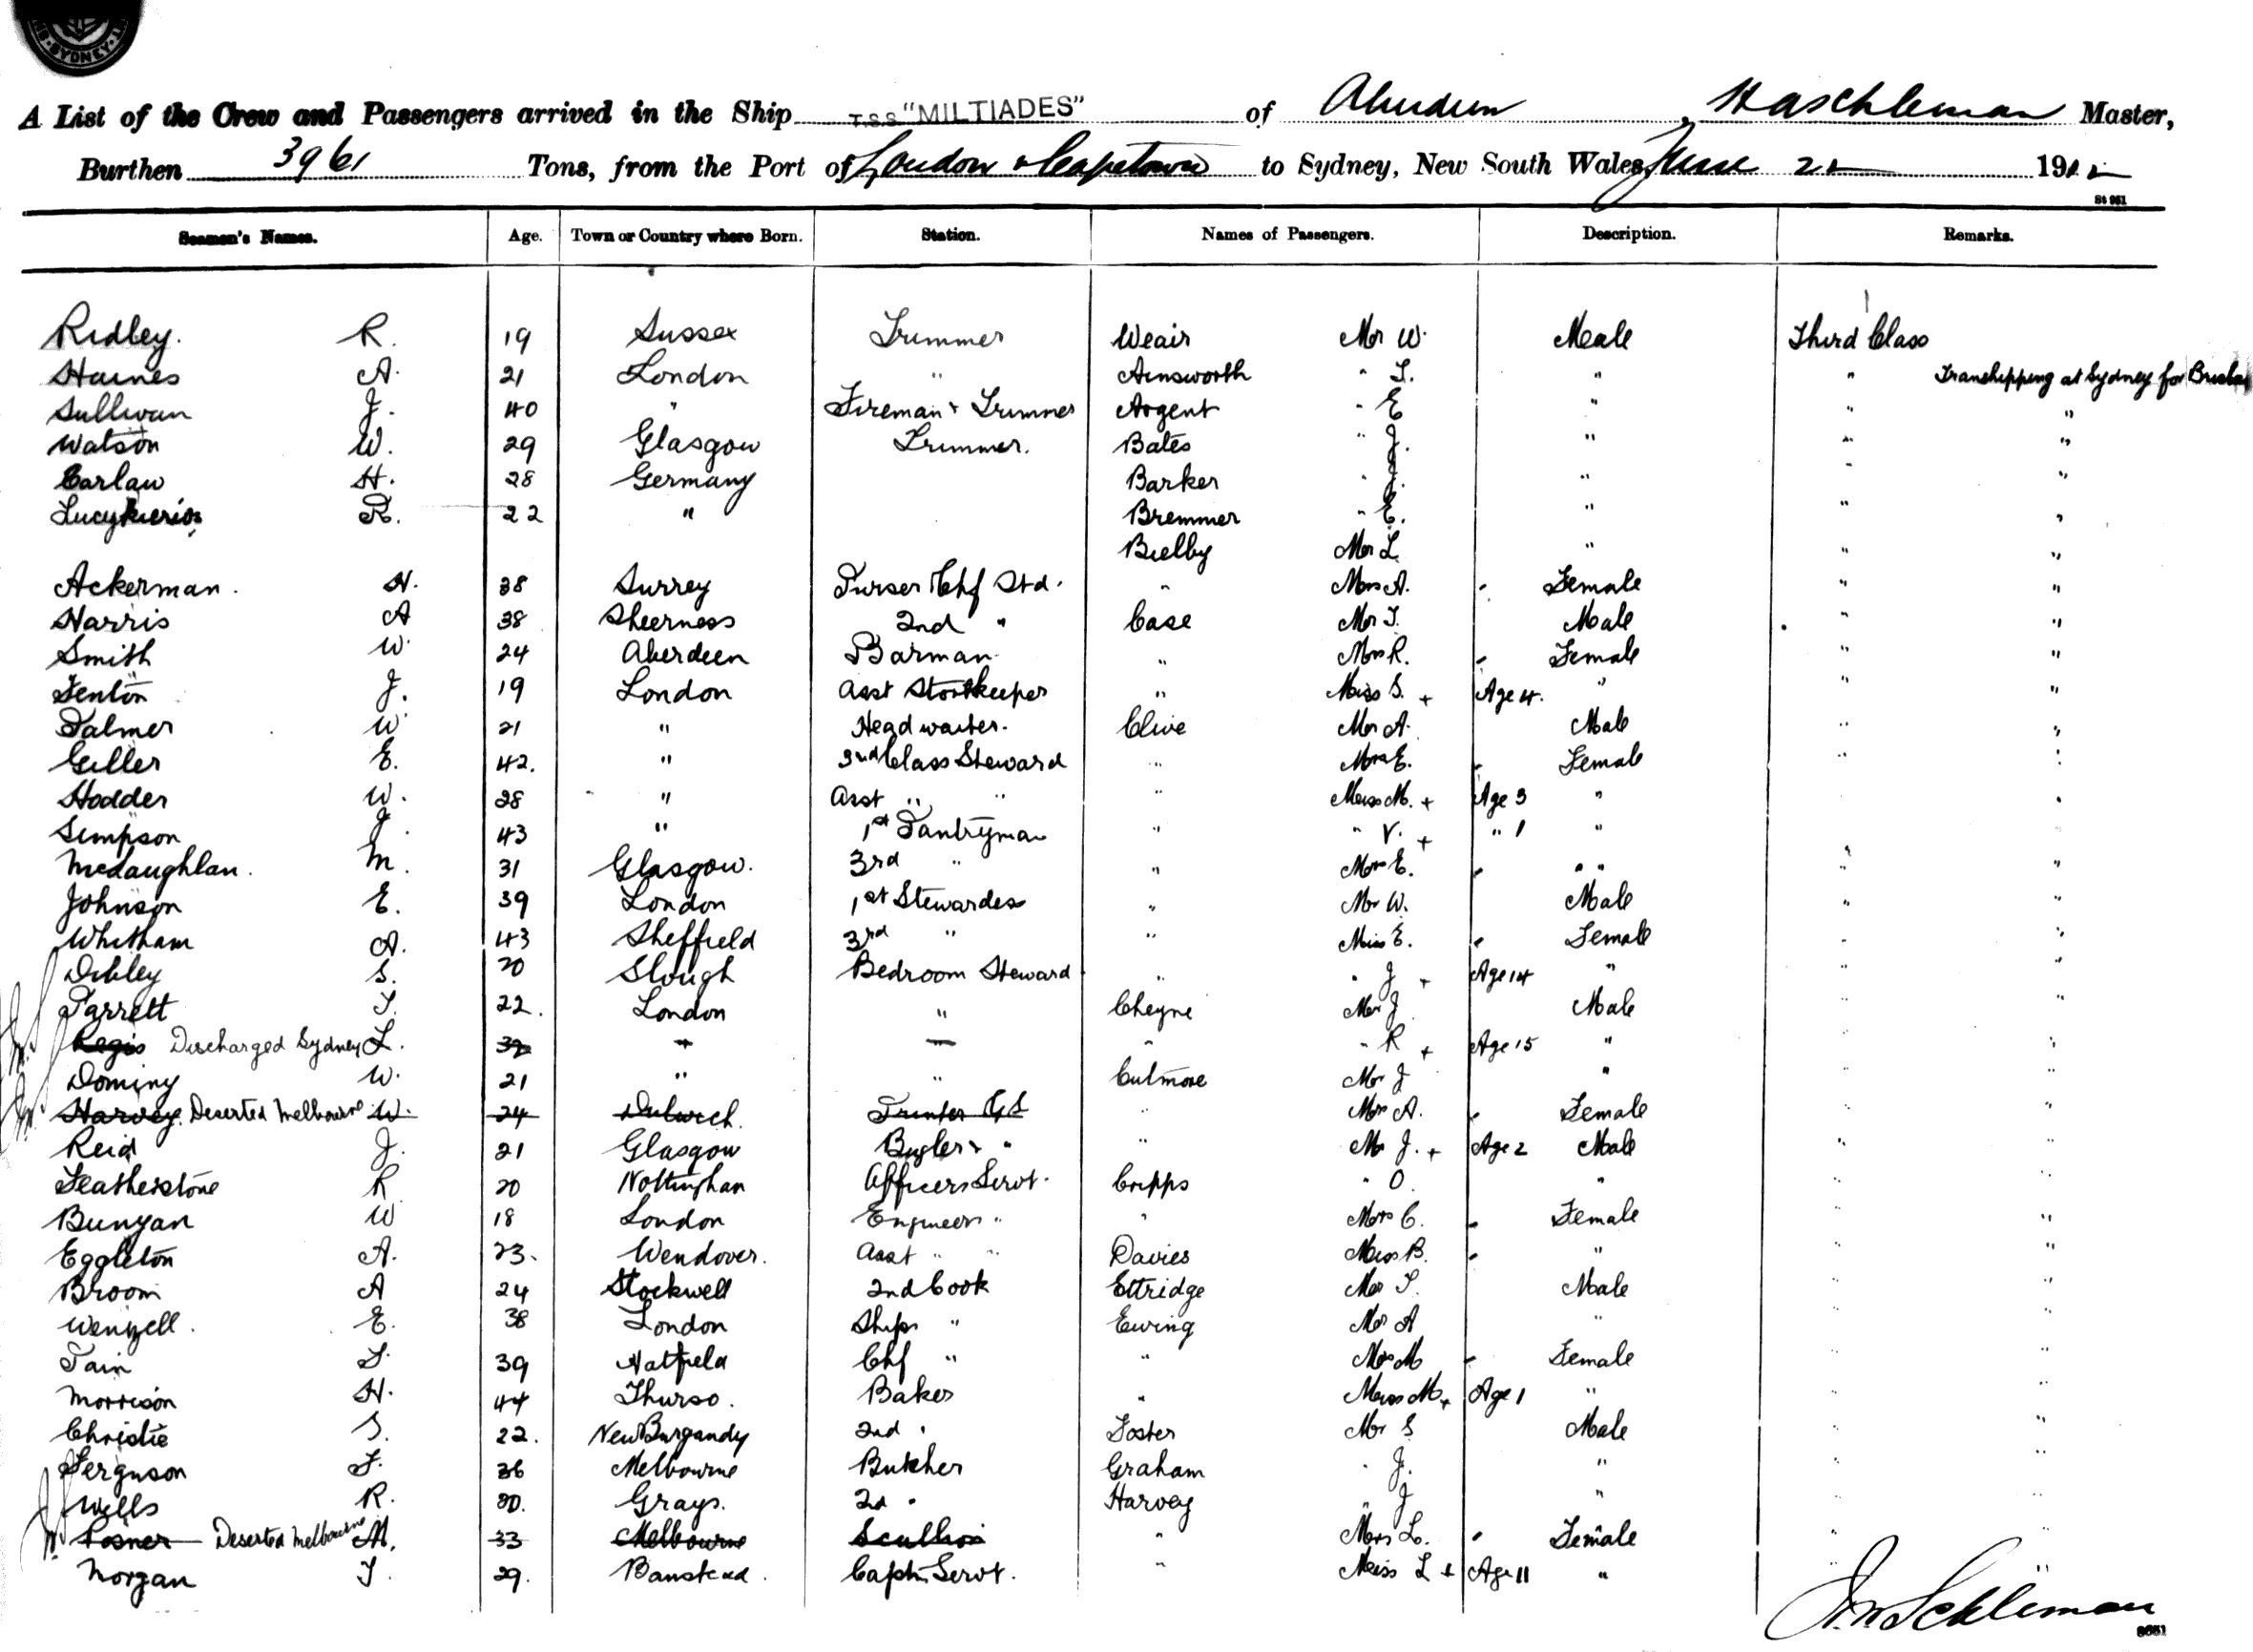 SYDNEY
A List of the Crew and Passengers arrived in the Ship T.S.S "MILTIADES" of Aberdeen, Master,
Burthen 3961 Tons, from the Port of London & Capetown to Sydney, New South Wales, June 22 1912
St 951
Seamen's Names. Age. Town or Country where Born. Station. Names of Passengers. Description. Remarks.
Ridley. R. 19 Sussex Trimmer Weair Mr W. Male Third Class
Haines A. 21 London " Ainsworth " L. " " Transhipping at Sydney for
Sullivan J. 40 " Fireman & Trimmer Argent " E " " "
Watson W. 29 Glasgow Trimmer. Bates " J. " " "
Carlaw H. 28 Germany Barker " J. " " "
R. 22 " Bremmer " E. " " "
Bielby Mr L " " "
Ackerman. H. 38 Surrey Purser Chf Std. " Mrs A. Female " "
Harris A 38 Sheerness 2nd " Case Mr T. Male " "
Smith W. 24 Aberdeen Barman " Mrs R. Female " "
Fenton J. 19 London Asst Storekeeper " Miss S. + Age 4. " " "
Palmer W. 21 " Head waiter. Clive Mr A. Male " "
Geller E. 42. " 2nd Class Steward " Mrs E. Female " "
Hodder W. 28 " Asst " " " Miss M. + Age 3 " "
Simpson J. 43 " 1st Pantryman " " V. + " 1 "
McLaughlan. M. 31 Glasgow. 3rd " " Mrs E. " " " "
Johnson E. 39 London 1st Stewardess " Mr W. Male " "
Whitham A. 43 Sheffield 3rd " " Miss E. Female " "
Dibley S. 20 Slough Bedroom Steward " " J + Age 14 " " "
Parrett T. 22. London " Cheyne Mr J Male " "
Regis Discharged Sydney L. 32 " " " " R + Age 15 " " "
Dominy W. 21 " " Cutmore Mr J " " "
Harvey. Deserted Melbourne W. 24 Dulwich Printer GS " Mrs A. Female " "
Reid J. 21 Glasgow Bugler & " " Mr J. + Age 2 Male " "
Featherstone R 20 Nottingham Officers Servt. Cripps " O. " " "
Bunyan W 18 London Engineers " " Mrs C. Female " "
Eggleton A. 23. Wendover. Asst " " Davies Miss B. " " "
Broom A 24 Stockwell 2nd Cook Ettridge Mr S. Male " "
Wenzell. E. 38 London Ships " Ewing Mr A " " "
Pain F. 39 Hatfield Chf " " Mrs M Female " "
Morrison H. 44 Thurso. Baker " Miss M. + Age 1 " " "
Christie S. 22. New Burgandy 2nd " Foster Mr S Male " "
Ferguson F. 36 Melbourne Butcher Graham " J. " " "
Wells R. 20. Grays. 2nd " Harvey " J " " "
Posner Deserted Melbourne M. 33 Melbourne Scullion " Mrs L. Female " "
Morgan T. 29. Banstead. Capt's Servt. " Miss L + Age 11 " " "